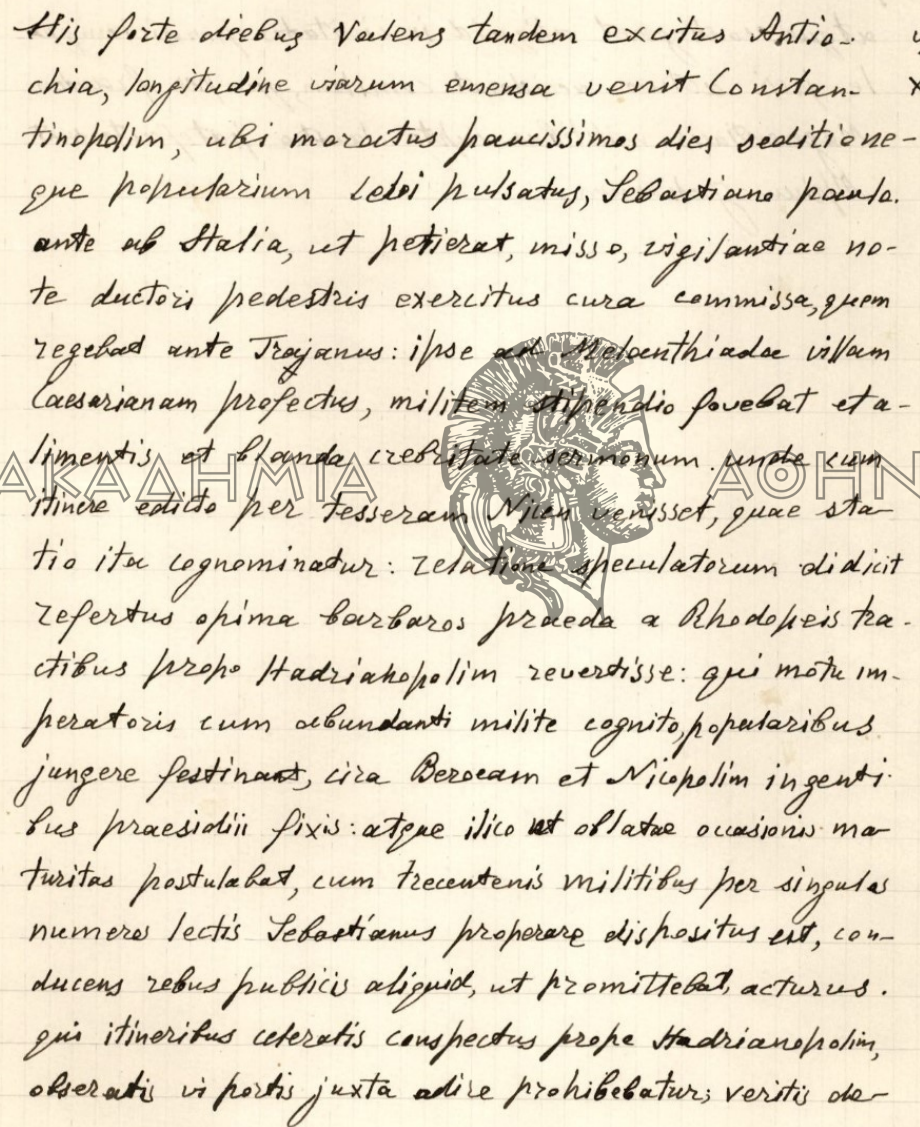 His forte diebus Valens tandem excitus Antio-
chia, longitudine viarum emensa venit Constan-
tinopolim, ubi moratus paucissimos dies seditione-
que popularium levi pulsatus, Sebastiano paulo
ante ab Italia, ut petierat, misso, vigilantiae no-
te ductori pedestris exercitus cura commissa, quem
regebat ante Trajanus: ipse ad Melanthiada villam
Caesarianam profectus, militem stipendio fovebat et a-
limentis et blanda crebritate sermonum. unde cum
ΑΚΑΔΗΜΙΑ ΑΘΗΝ
itinere edicto per tesseram Nicen venisset, quae sta-
tio ita cognominatur: relatione speculatorum didicit
refertus opima barbaros praeda a Rhodopeis tra-
ctibus prope Hadrianopolim revertisse: qui motu im-
peratoris cum abundanti milite cognito, popularibus
jungere festinant, circa Beroeam et Nicopolim ingenti-
bus praesidiis fixis: atque ilico ut oblatae occasionis ma-
turitas postulabat, cum trecentenis militibus per singulos
numeros lectis Sebastianus properare dispositus est, con-
ducens rebus publicis aliquid, ut promittebat, acturus.
qui itineribus celeratis conspectus prope Hadrianopolim,
obseratis vi portis juxta adire prohibebatur; veritis de-